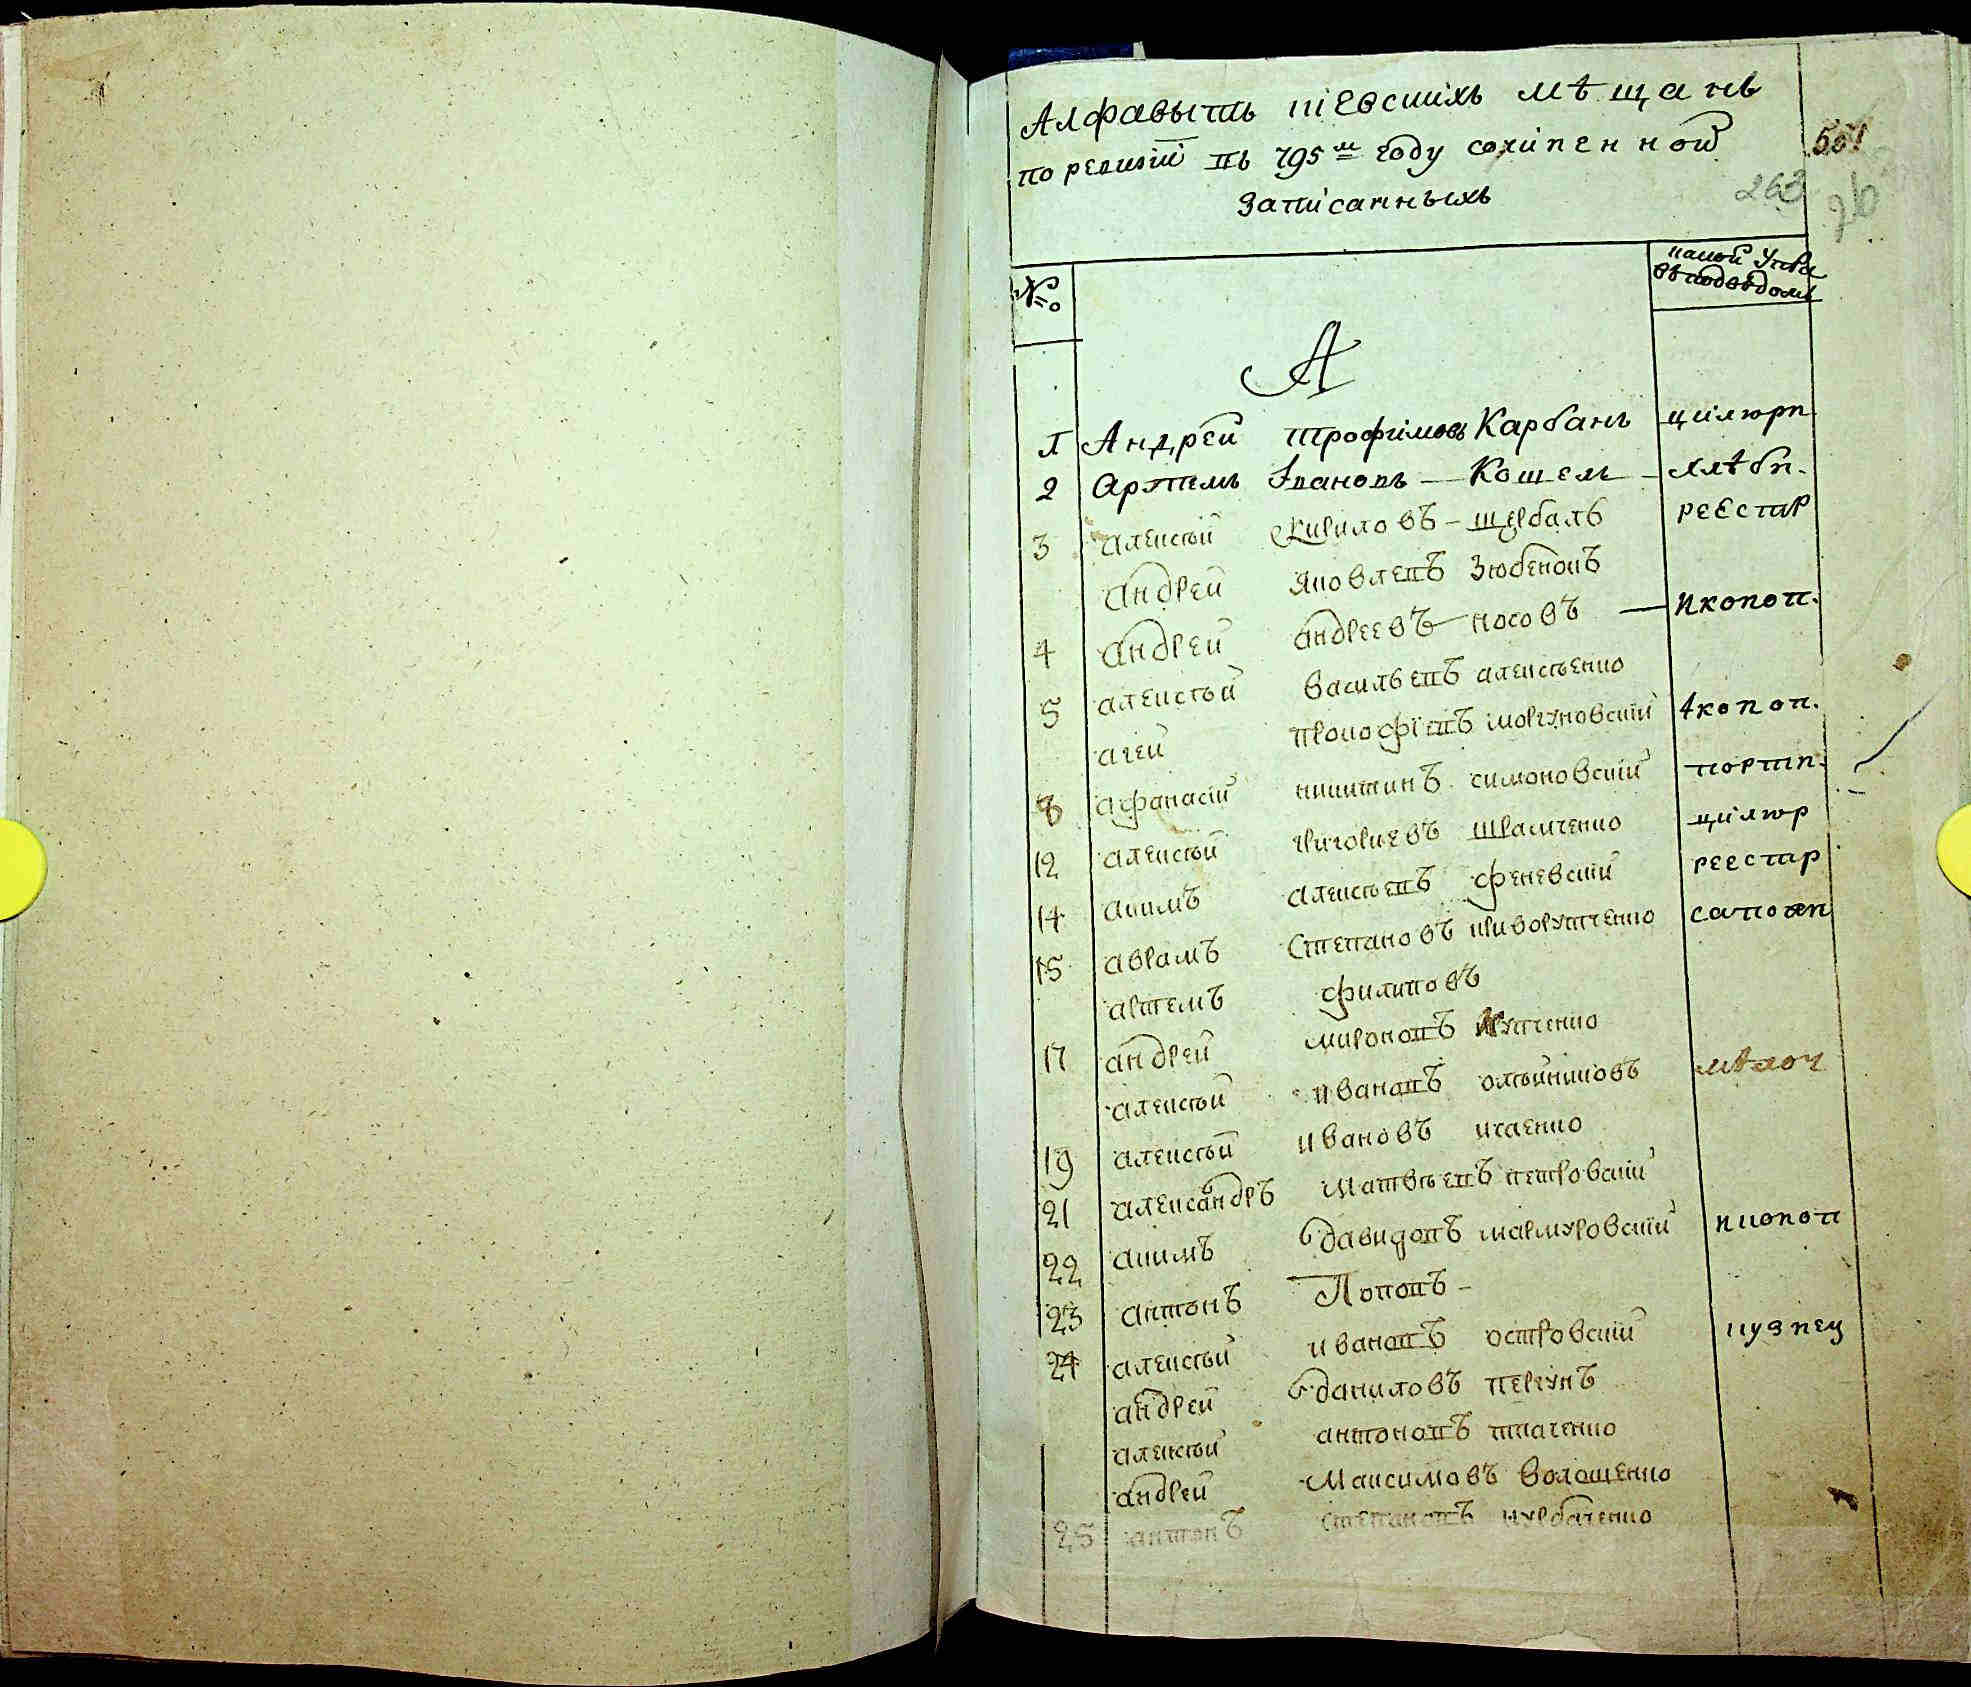 Алфавытъ кіевскихъ мѣщанъ
по ревизіи въ 795м году сочиненной
записанныхъ
501
263
№
какой Управы
вѣдом
А
1 Андрей Трофимовъ Карбанъ цилюрн
2 Артемъ Івановъ — Кошель — хлѣбн.
3 алексѣй Кириловъ — щербакъ реестр
андрей яковлевъ Зюбенокъ
4 андрей андреевъ — носовъ — иконоп.
5 алексѣй васильевъ алексѣенко
агей прокофіевъ моргуновскій іконоп.
8 афанасій никитинъ симоновскій портн.
12 алексѣй григориевъ шрамченко цилюр
14 акимъ алексѣевъ феневскій реестр
15 аврамъ Степановъ криворутченко сапожн
артемъ филиповъ
17 андрей мироновъ крутченко
алексѣй ивановъ олѣйниковъ мѣлоч
19 алексѣй ивановъ исаенко
21 александръ матвѣевъ петровскій
22 акимъ давидовъ мармуровскій иконоп
23 антонъ Поповъ —
24 алексѣй ивановъ островскій кузнец
андрей даниловъ пергунъ
алексѣй антоновъ ткаченко
андрей максимовъ волошенко
25 антонъ степановъ курбаченко